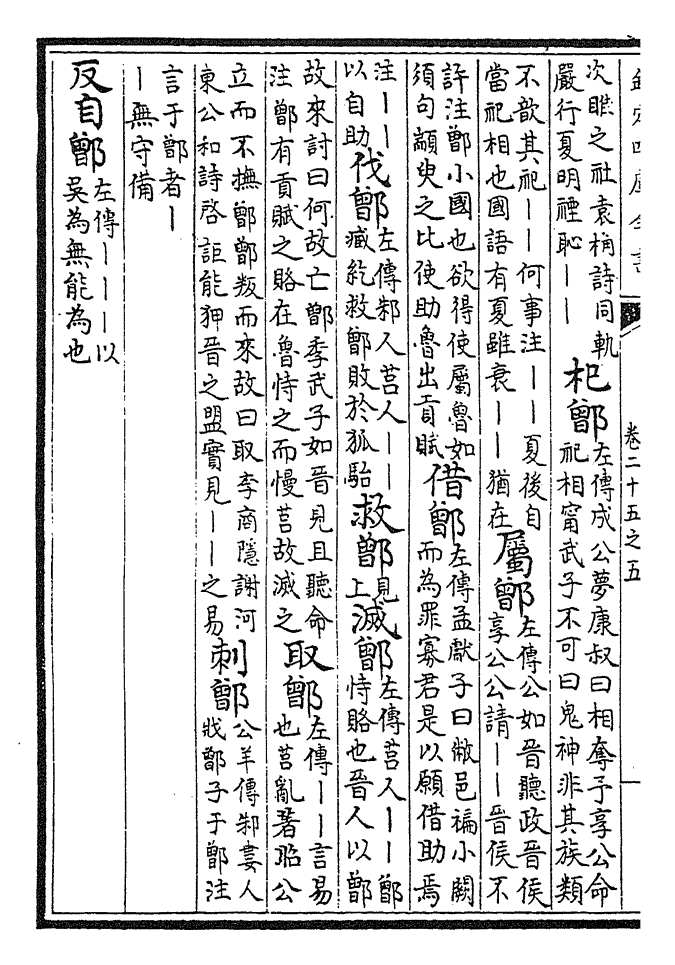 欽定四庫全書
卷二十五之五
次睢之社袁桷詩同軌
嚴行夏明禋恥丨丨
杞鄫
左傳成公夢康叔曰相奪予享公命
祀相甯武子不可曰鬼神非其族類
不歆其祀丨丨何事注丨丨夏後自
當祀相也國語有夏雖衰丨丨猶在
屬鄫
左傳公如晉聽政晉侯
享公公請丨丨晉侯不
許注鄫小國也欲得使屬魯如
須句顓臾之比使助魯出貢賦
借鄫
左傳孟獻子曰敝邑褊小闕
而為罪寡君是以願借助焉
注丨丨
以自助
伐鄫
左傳邾人莒人丨丨
臧紇救鄫敗於狐駘
救鄫
見
上
滅鄫
左傳莒人丨丨鄫
恃賂也晉人以鄫
故來討曰何故亡鄫季武子如晉見且聽命
注鄫有貢賦之賂在魯恃之而慢莒故滅之
取鄫
左傳丨丨言易
也莒亂著公
立而不撫鄫鄫叛而來故曰取李商隱謝河
東公和詩啓詎能狎晉之盟實見丨丨之易
刺鄫
公羊傳邾婁人
戕鄫子于鄫注
言于鄫者丨
丨無守備
反自鄫
左傳丨丨丨以
吳為無能為也